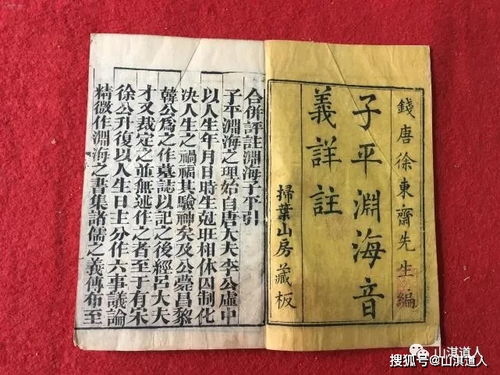 錢唐徐東齋先生編
子平淵海音
義詳註
掃葉山房藏板
合併評註淵海子平引
子平淵海之理始自唐大夫李公虛中
以人生年月日時生尅旺相休囚制化
决人生之禍福其驗神矣及公薨昌黎
韓公爲之作墓誌以記之後經呂大夫
才又裁定之並無述作之者至于有宋
徐公升復以人生日主分作六事議論
精微作淵海之書集諸儒之義傳布至
山淇道人
搜狐号@山淇道人